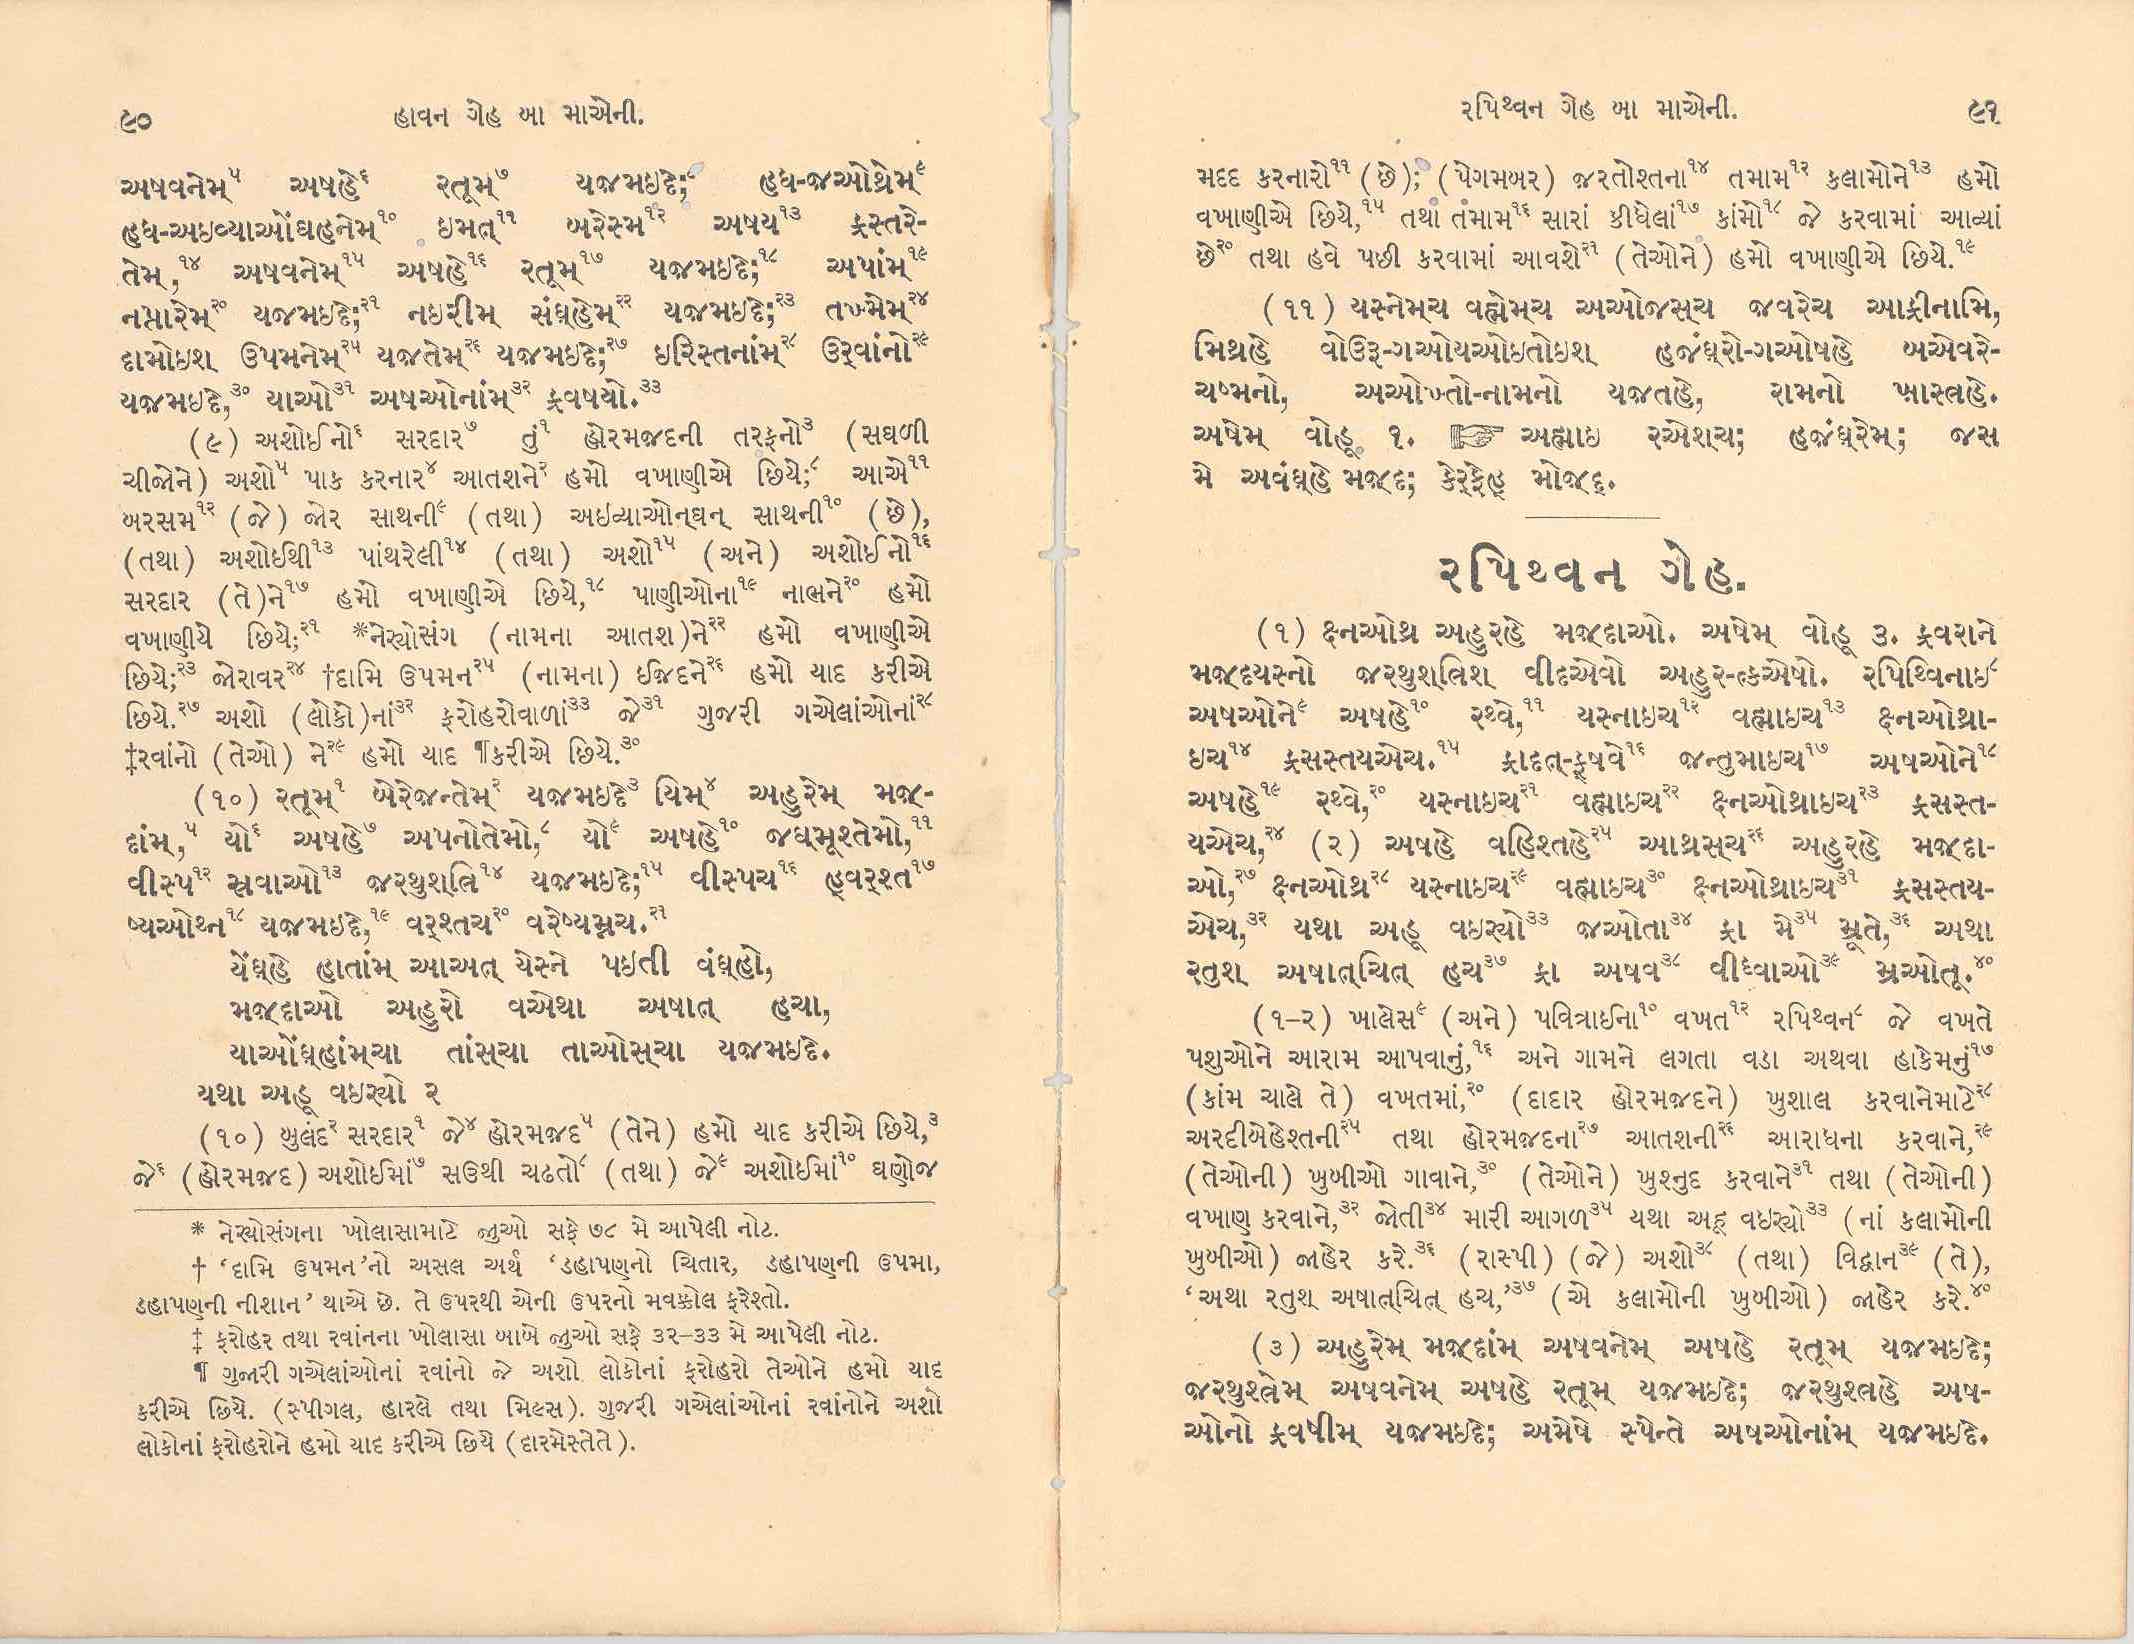 ૯૦ હાવન ગેહ બા માએની.
અષવનેમ્૫ અષહે૬ રતૂમ્૭ યજમઇદે;૮ હધ-જઓથ્રેમ્૯
હધ-અઇવ્યાઓંઘહનેમ્૧૦ ઇમત્૧૧ બરેસ્મ૧૨ અષય૧૩ ફ્રસ્તરે-
તેમ્,૧૪ અષવનેમ્૧૫ અષહે૧૬ રતૂમ્૧૭ યજમઇદે;૧૮ અપાંમ્૧૯
નપ્તારેમ્૨૦ યજમઇદે;૨૧ નઇરીમ્ સંઘ્હેમ્૨૨ યજમઇદે;૨૩ તખ્મેમ્૨૪
દામોઇશ્ ઉપમનેમ્૨૫ યજતેમ્૨૬ યજમઇદે;૨૭ ઇરિસ્તનાંમ્૨૮ ઉર્‌વાંનો૨૯
યજમઇદે,૩૦ યાઓ૩૧ અષઓનાંમ્૩૨ ફ્રવષયો.૩૩
(૯) અશોઈનો૬ સરદાર૭ તું૧ હોરમજદની તરફનો૩ (સઘળી
ચીજોને) અશો૫ પાક કરનાર૪ આતશને૨ હમો વખાણીએ છિયે;૮ આએ૧૧
બરસમ૧૨ (જે) જોર સાથની૯ (તથા) અઇવ્યાઓન્ઘન્ સાથની૧૦ (છે),
(તથા) અશોઈથી૧૩ પાંથરેલી૧૪ (તથા) અશો૧૫ (અને) અશોઈનો૧૬
સરદાર (તે)ને૧૭ હમો વખાણીએ છિયે,૧૮ પાણીઓના૧૯ નાભને૨૦ હમો
વખાણીયે છિયે;૨૧ *નેર્યોસંગ (નામના આતશ)ને૨૨ હમો વખાણીએ
છિયે;૨૩ જોરાવર૨૪ †દામિ ઉપમન૨૫ (નામના) ઈજદને૨૬ હમો યાદ કરીએ
છિયે.૨૭ અશો (લોકો)નાં૩૨ ફરોહરોવાળાં૩૩ જે૩૧ ગુજરી ગએલાંઓનાં૨૮
‡રવાંનો (તેઓ) ને૨૯ હમો યાદ ¶કરીએ છિયે.૩૦
(૧૦) રતૂમ્૧ બેરેજન્તેમ્૨ યજમઇદે૩ યિમ્૪ અહુરેમ્ મજ્-
દાંમ્,૫ યો૬ અષહે૭ અપનોતેમો,૮ યો૯ અષહે૧૦ જઘ્મૂશ્તેમો,૧૧
વીસ્પ૧૨ સ્રવાઓ૧૩ જરથુશ્ત્રિ૧૪ યજમઇદે;૧૫ વીસ્પચ૧૬ હ્વર્‌શ્ત૧૭
ષ્યઓથ્ન૧૮ યજમઇદે,૧૯ વર્‌શ્તચ૨૦ વરેષ્યમ્નચ.૨૧
યેંઘ્હે હાતાંમ્ આઅત્ યેસ્ને પઇતી વંઘ્હો,
મજ્દાઓ અહુરો વએથા અષાત્ હચા,
યાઓંઘ્હાંમ્ચા તાંસ્ચા તાઓસ્ચા યજમઇદે.
યથા અહૂ વઇર્યો ૨
(૧૦) બુલંદ૨ સરદાર૧ જે૪ હોરમજદ૫ (તેને) હમો યાદ કરીએ છિયે,૩
જે૬ (હોરમજદ) અશોઈમાં૭ સઉથી ચઢતો૮ (તથા) જે૯ અશોઈમાં૧૦ ઘણોજ
* નેર્યોસંગના ખોલાસામાટે જુઓ સફે ૭૮ મે આપેલી નોટ.
† ‘દામિ ઉપમન’નો અસલ અર્થ ‘ડહાપણનો ચિતાર, ડહાપણની ઉપમા,
ડહાપણની નીશાન’ થાએ છે. તે ઉપરથી એની ઉપરનો મવક્કોલ ફરેશ્તો.
‡ ફરોહર તથા રવાંનના ખોલાસા બાબે જુઓ સફે ૩૨–૩૩ મે આપેલી નોટ.
¶ ગુજરી ગએલાંઓનાં રવાંનો જે અશો લોકોનાં ફરોહરો તેઓને હમો યાદ
કરીએ છિયે. (સ્પીગલ, હારલે તથા મિલ્સ). ગુજરી ગએલાંઓનાં રવાંનોને અશો
લોકોનાં ફરોહરોને હમો યાદ કરીએ છિયે (દારમેસ્તેતે).
રપિથ્વન ગેહ બા માએની. ૯૧
મદદ કરનારો૧૧ (છે); (પેગમબર) જરતોશ્તના૧૪ તમામ૧૨ કલામોને૧૩ હમો
વખાણીએ છિયે,૧૫ તથા તંમામ૧૬ સારાં કીધેલાં૧૭ કાંમો૧૮ જે કરવામાં આવ્યાં
છે૨૦ તથા હવે પછી કરવામાં આવશે૨૧ (તેઓને) હમો વખાણીએ છિયે.૧૯
(૧૧) યસ્નેમ્ચ વહ્મેમ્ચ અઓજસ્ચ જવરેચ આફ્રીનામિ,
મિથ્રહે વોઉરૂ-ગઓયઓઇતોઇશ્ હજંઘ્રો-ગઓષહે બએવરે-
ચષ્મનો, અઓખ્તો-નામનો યજતહે, રામનો ખાસ્ત્રહે.
અષેમ્ વોહૂ ૧. ☞ અહ્માઇ રએશ્ચ; હજંઘ્રેમ્; જસ
મે અવંઘ્હે મજ્દ; કેર્‌ફેહ્ મોજ્દ્.
રપિથ્વન ગેહ.
(૧) ક્ષ્નઓથ્ર અહુરહે મજ્દાઓ. અષેમ્ વોહૂ ૩. ફ્રવરાને
મજ્દયસ્નો જરથુશ્ત્રિશ્ વીદએવો અહુર-ત્કએષો. રપિથ્વિનાઇ૮
અષઓને૯ અષહે૧૦ રથ્વે,૧૧ યસ્નાઇચ૧૨ વહ્માઇચ૧૩ ક્ષ્નઓથ્રા-
ઇચ૧૪ ફ્રસસ્તયએચ.૧૫ ફ્રાદત્-ફ્ષવે૧૬ જન્તુમાઇચ૧૭ અષઓને૧૮
અષહે૧૯ રથ્વે,૨૦ યસ્નાઇચ૨૧ વહ્માઇચ૨૨ ક્ષ્નઓથ્રાઇચ૨૩ ફ્રસસ્ત-
યએચ,૨૪ (૨) અષહે વહિશ્તહે૨૫ આથ્રસ્ચ૨૬ અહુરહે મજ્દા-
ઓ,૨૭ ક્ષ્નઓથ્ર૨૮ યસ્નાઇચ૨૯ વહ્માઇચ૩૦ ક્ષ્નઓથ્રાઇચ૩૧ ફ્રસસ્તય-
એચ,૩૨ યથા અહૂ વઇર્યો૩૩ જઓતા૩૪ ફ્રા મે૩૫ મ્રૂતે,૩૬ અથા
રતુશ્ અષાત્‌ચિત્ હચ૩૭ ફ્રા અષવ૩૮ વીધ્વાઓ૩૯ મ્રઓતૂ.૪૦
(૧–૨) ખાલેસ૯ (અને) પવિત્રાઈના૧૦ વખત૧૨ રપિથ્વન૮ જે વખતે
પશુઓને આરામ આપવાનું,૧૬ અને ગામને લગતા વડા અથવા હાકેમનું૧૭
(કાંમ ચાલે તે) વખતમાં,૨૦ (દાદાર હોરમજદને) ખુશાલ કરવાનેમાટે૨૮
અરદીબેહેશ્તની૨૫ તથા હોરમજદના૨૭ આતશની૨૬ આરાધના કરવાને,૨૯
(તેઓની) ખુબીઓ ગાવાને,૩૦ (તેઓને) ખુશ્નુદ કરવાને૩૧ તથા (તેઓની)
વખાણ કરવાને,૩૨ જોતી૩૪ મારી આગળ૩૫ યથા અહૂ વઇર્યો૩૩ (નાં કલામોની
ખુબીઓ) જાહેર કરે.૩૬ (રાસ્પી) (જે) અશો૩૮ (તથા) વિદ્વાન૩૯ (તે),
‘અથા રતુશ્ અષાત્‌ચિત્ હચ,’૩૭ (એ કલામોની ખુબીઓ) જાહેર કરે.૪૦
(૩) અહુરેમ્ મજ્દાંમ્ અષવનેમ્ અષહે રતૂમ્ યજમઇદે;
જરથુશ્ત્રેમ્ અષવનેમ્ અષહે રતૂમ્ યજમઇદે; જરથુશ્ત્રહે અષ-
ઓનો ફ્રવષીમ્ યજમઇદે; અમેષે સ્પેન્તે અષઓનાંમ્ યજમઇદે.